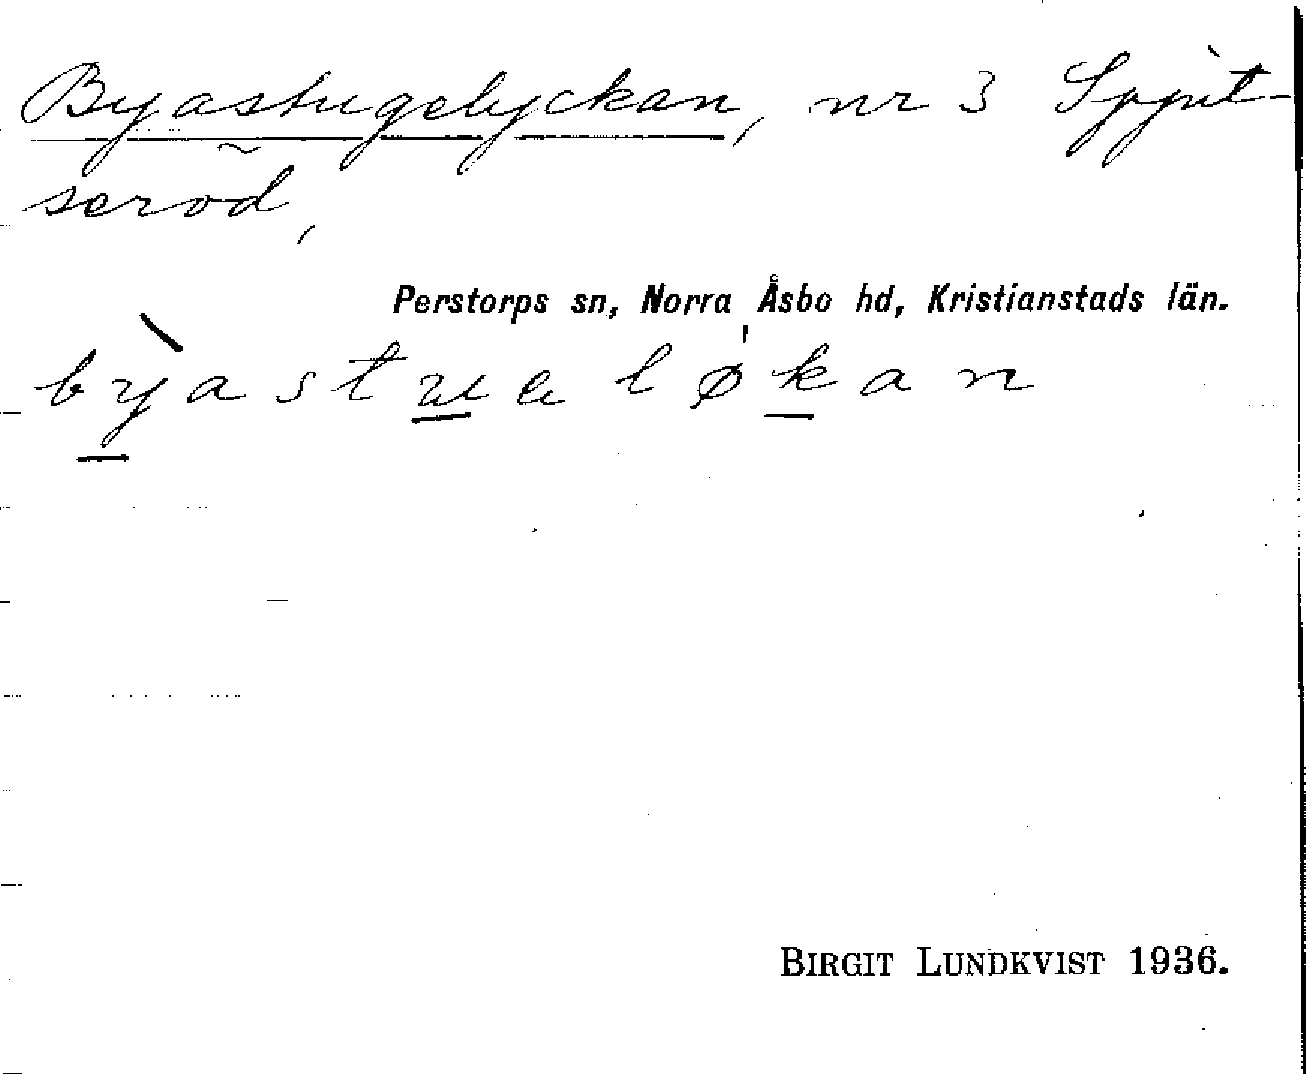 Byastugelyckan, nr 3 Spjut-
seröd,
Perstorps sn, Norra Åsbo hd, Kristianstads län.
bỳastualø'kan
BIRGIT LUNDKVIST 1936.